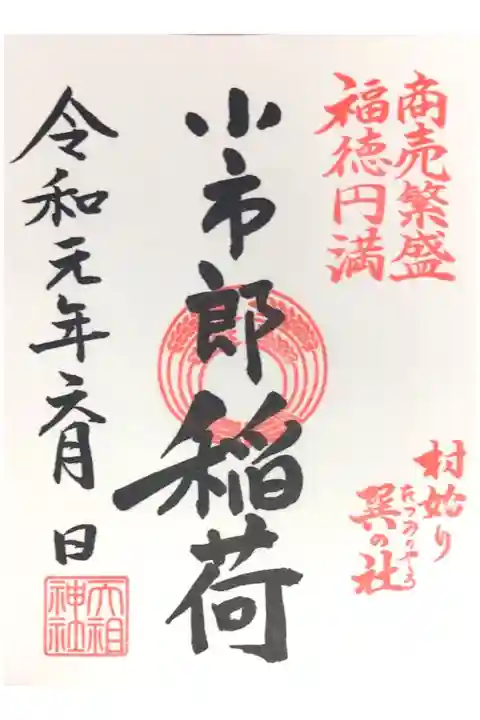 商売繁盛
福徳円満
村始り
巽の社
たつみのやしろ
小市郎稲荷
令和元年六月 日
六祖
神社